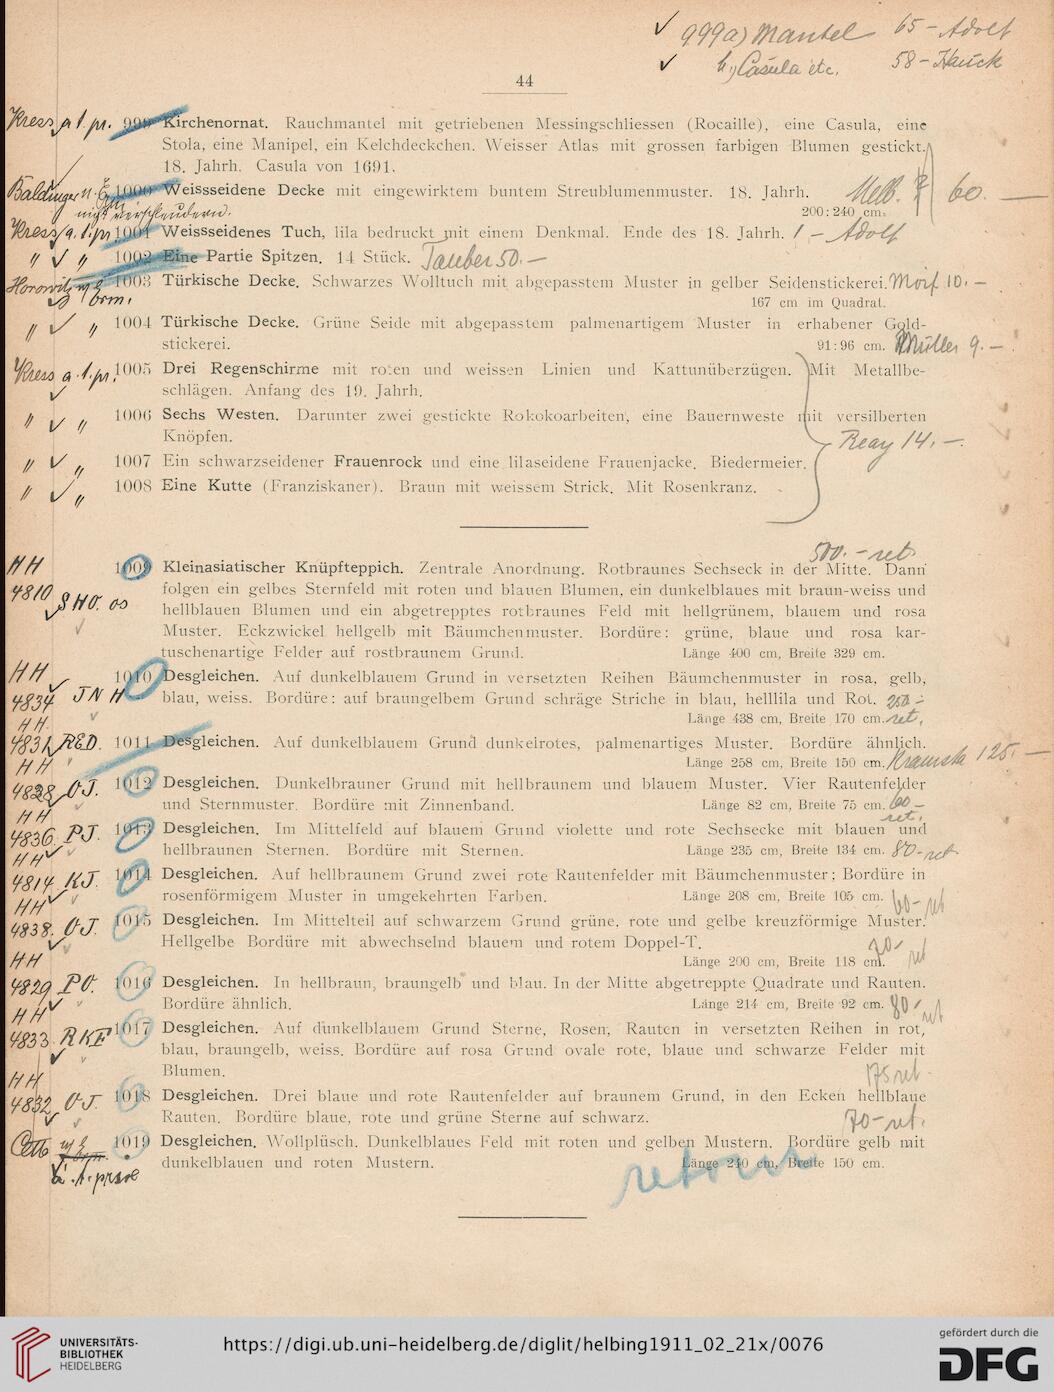 ✓ 999a) Mantel 65 - Adolf
✓ b.) Casula etc. 58 - Hauck
44
Kress a t. pr. 999 Kirchenornat. Rauchmantel mit getriebenen Messingschliessen (Rocaille), eine Casula, eine
Stola, eine Manipel, ein Kelchdeckchen. Weisser Atlas mit grossen farbigen Blumen gestickt.
18. Jahrh. Casula von 1691.
Baldinger 1000 Weissseidene Decke mit eingewirktem buntem Streublumenmuster. 18. Jahrh. Melb. 60. —
nicht verschleudern. 200:240 cm.
Kress a. t. pr. 1001 Weissseidenes Tuch, lila bedruckt mit einem Denkmal. Ende des 18. Jahrh. 1 - Adolf
" ✓ " 1002 Eine Partie Spitzen. 14 Stück. Tauber 50. —
Horowitz 1003 Türkische Decke. Schwarzes Wolltuch mit abgepasstem Muster in gelber Seidenstickerei. Morf 10. —
167 cm im Quadrat.
" ✓ " 1004 Türkische Decke. Grüne Seide mit abgepasstem palmenartigem Muster in erhabener Gold-
stickerei. 91:96 cm. Müller 9. —
Kress a. t. pr. 1005 Drei Regenschirme mit roten und weissen Linien und Kattunüberzügen. Mit Metallbe-
✓ schlägen. Anfang des 19. Jahrh.
" ✓ " 1006 Sechs Westen. Darunter zwei gestickte Rokokoarbeiten, eine Bauernweste mit versilberten
Knöpfen. Reay 14. —
" ✓ " 1007 Ein schwarzseidener Frauenrock und eine lilaseidene Frauenjacke. Biedermeier.
" ✓ " 1008 Eine Kutte (Franziskaner). Braun mit weissem Strick. Mit Rosenkranz.
500. - ret.
HH 1009 Kleinasiatischer Knüpfteppich. Zentrale Anordnung. Rotbraunes Sechseck in der Mitte. Dann
4810 folgen ein gelbes Sternfeld mit roten und blauen Blumen, ein dunkelblaues mit braun-weiss und
SHO. os hellblauen Blumen und ein abgetrepptes rotbraunes Feld mit hellgrünem, blauem und rosa
Muster. Eckzwickel hellgelb mit Bäumchenmuster. Bordüre: grüne, blaue und rosa kar-
tuschenartige Felder auf rostbraunem Grund. Länge 400 cm, Breite 329 cm.
HH 1010 Desgleichen. Auf dunkelblauem Grund in versetzten Reihen Bäumchenmuster in rosa, gelb,
4834 JNH blau, weiss. Bordüre: auf braungelbem Grund schräge Striche in blau, helllila und Rot. 250 -
HH. Länge 438 cm, Breite 170 cm. ret.
4831 RED. 1011 Desgleichen. Auf dunkelblauem Grund dunkelrotes, palmenartiges Muster. Bordüre ähnlich.
HH Länge 258 cm, Breite 150 cm. Kramsta 125. —
4828 OJ. 1012 Desgleichen. Dunkelbrauner Grund mit hellbraunem und blauem Muster. Vier Rautenfelder
HH und Sternmuster. Bordüre mit Zinnenband. Länge 82 cm, Breite 75 cm. 60 - ret.
4836. PJ. 1013 Desgleichen. Im Mittelfeld auf blauem Grund violette und rote Sechsecke mit blauen und
HH hellbraunen Sternen. Bordüre mit Sternen. Länge 235 cm, Breite 134 cm. 80 - ret.
4814 KJ. 1014 Desgleichen. Auf hellbraunem Grund zwei rote Rautenfelder mit Bäumchenmuster; Bordüre in
HH rosenförmigem Muster in umgekehrten Farben. Länge 208 cm, Breite 105 cm. 60 - ret
4838. OJ. 1015 Desgleichen. Im Mittelteil auf schwarzem Grund grüne, rote und gelbe kreuzförmige Muster.
Hellgelbe Bordüre mit abwechselnd blauem und rotem Doppel-T. 70 - ret
HH Länge 200 cm, Breite 118 cm.
4829 PO. 1016 Desgleichen. In hellbraun, braungelb und blau. In der Mitte abgetreppte Quadrate und Rauten.
HH Bordüre ähnlich. Länge 214 cm, Breite 92 cm. 80 - ret
4833 RKE 1017 Desgleichen. Auf dunkelblauem Grund Sterne, Rosen, Rauten in versetzten Reihen in rot,
blau, braungelb, weiss. Bordüre auf rosa Grund ovale rote, blaue und schwarze Felder mit
HH Blumen. 175 ret.
4832 OJ. 1018 Desgleichen. Drei blaue und rote Rautenfelder auf braunem Grund, in den Ecken hellblaue
Rauten. Bordüre blaue, rote und grüne Sterne auf schwarz. 70 - ret.
1019 Desgleichen. Wollplüsch. Dunkelblaues Feld mit roten und gelben Mustern. Bordüre gelb mit
dunkelblauen und roten Mustern. Länge 240 cm, Breite 150 cm.
retour
UNIVERSITÄTS-
BIBLIOTHEK
HEIDELBERG
https://digi.ub.uni-heidelberg.de/diglit/helbing1911_02_21x/0076
gefördert durch die
DFG